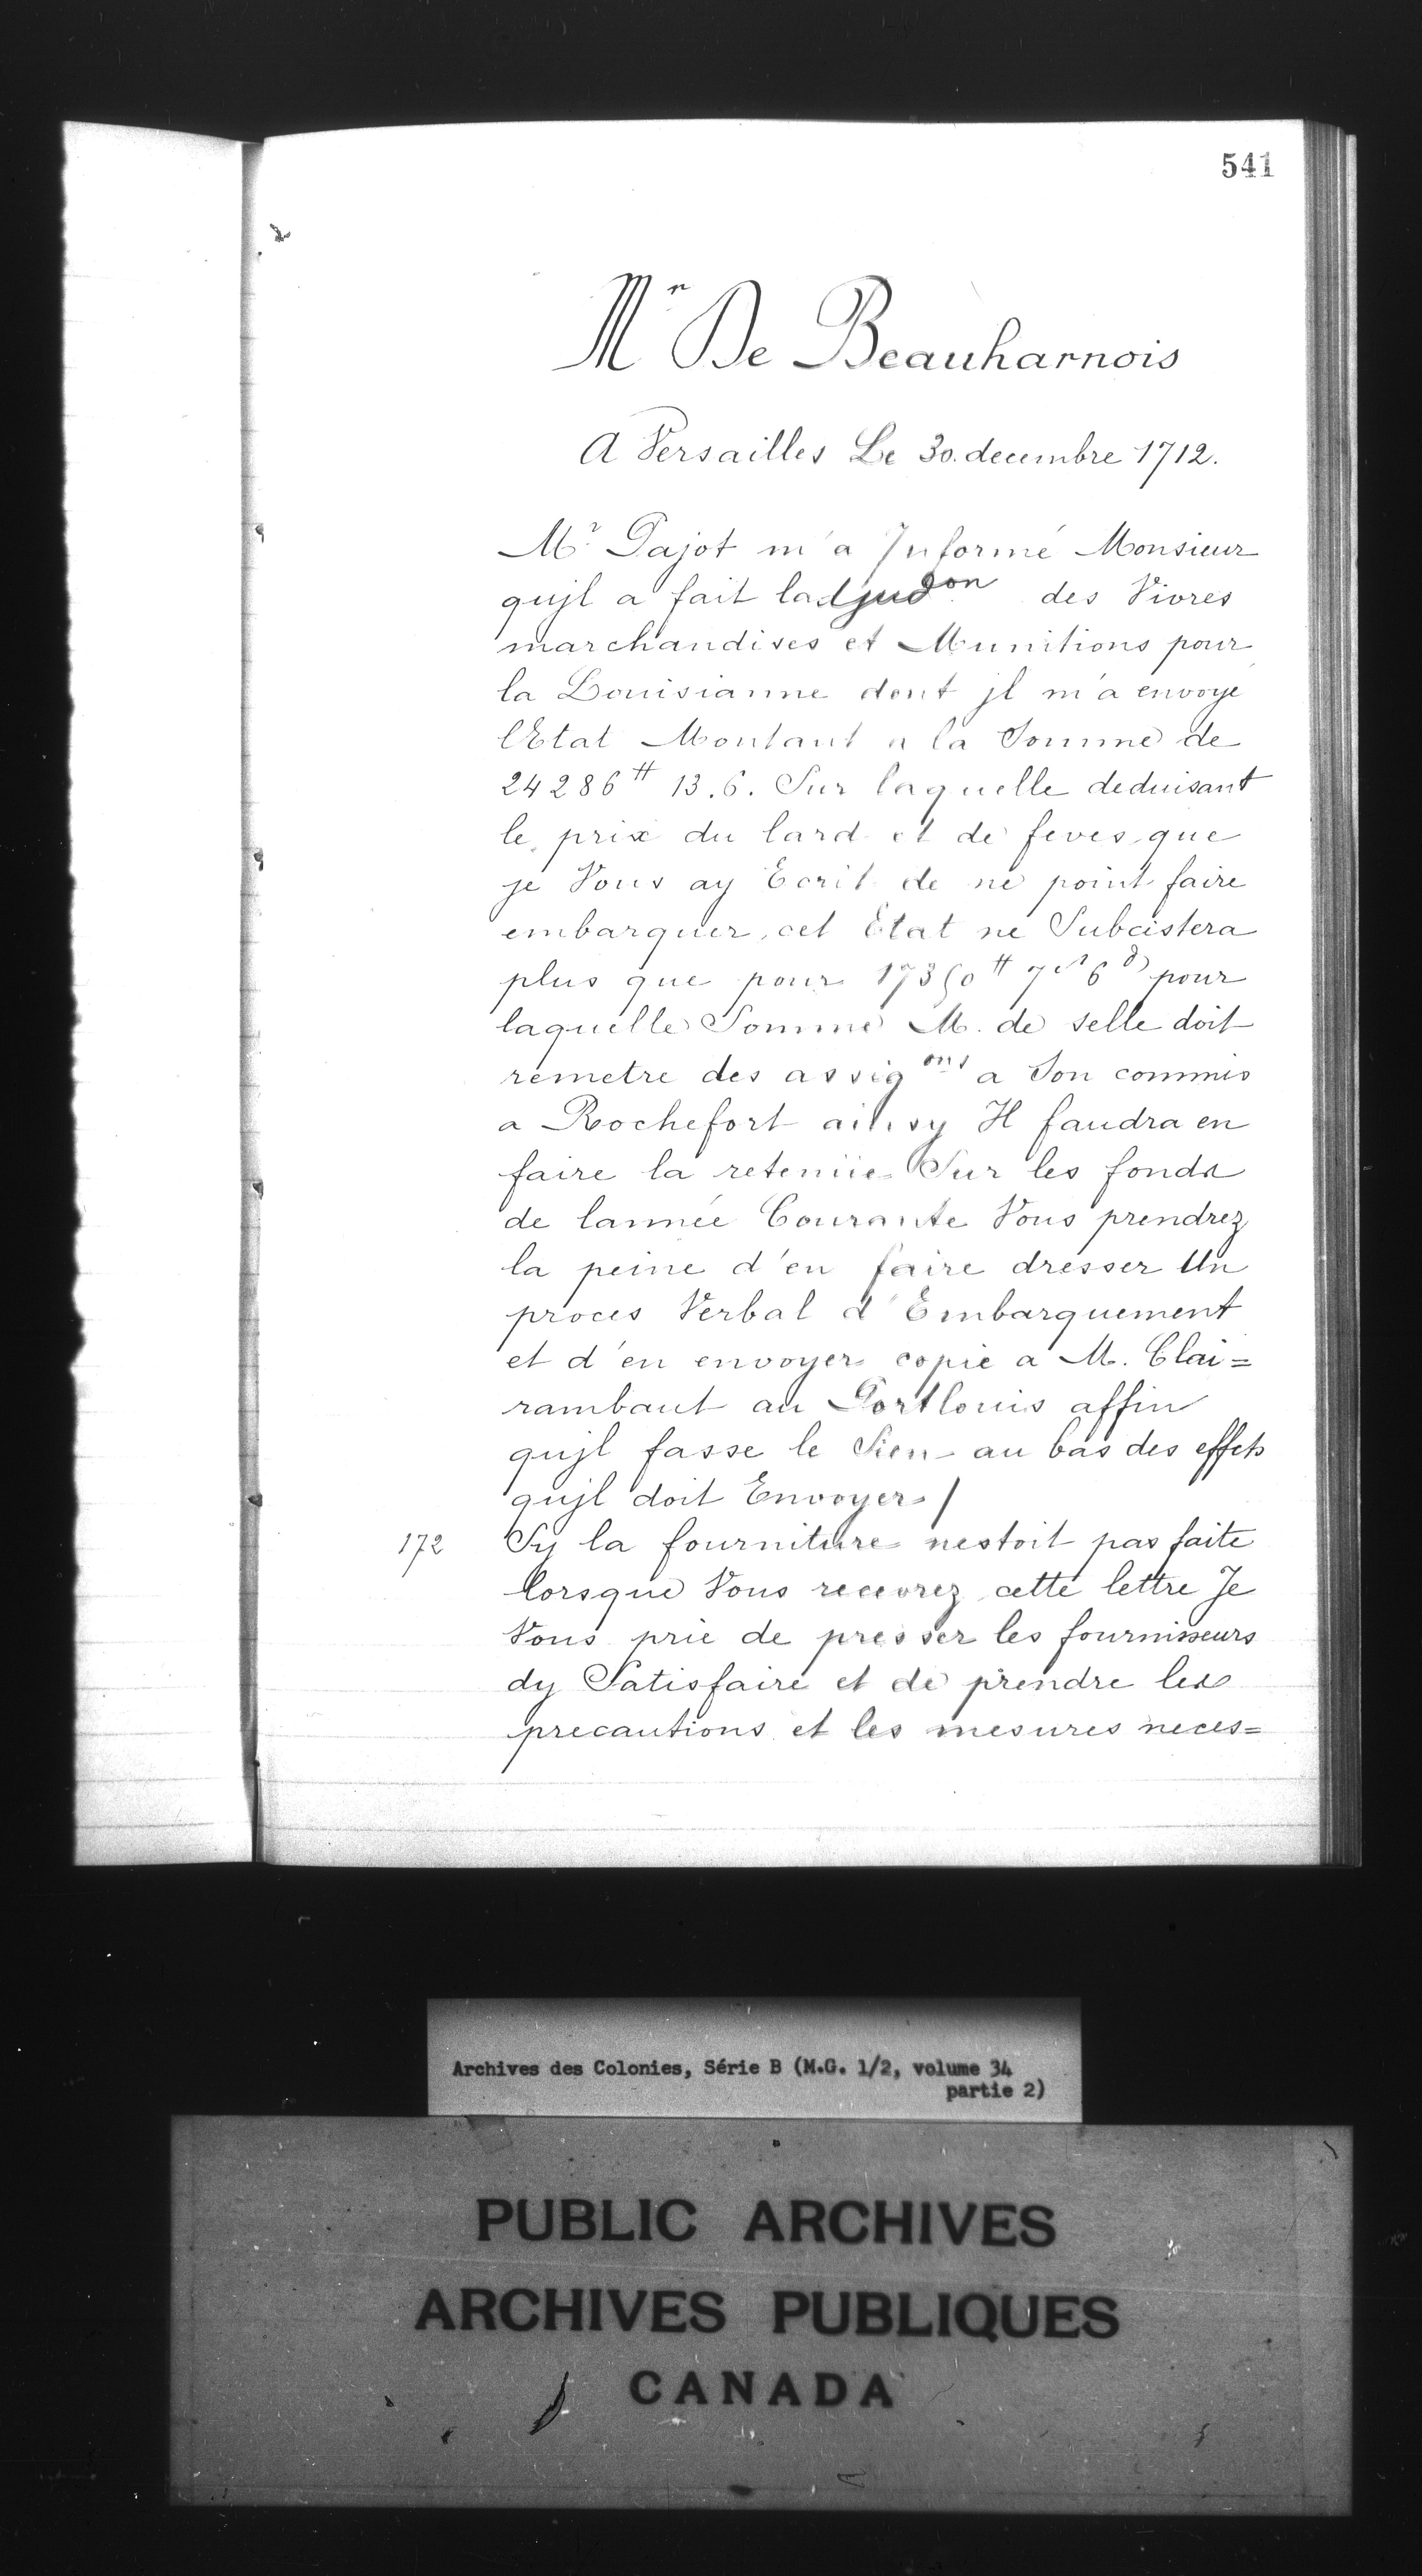 541
Mr De Beauharnois
A Versailles Le 30. decembre 1712.
Mr Pajot m'a Jnformé Monsieur
qujl a fait ladjudon des Vivres
marchandises et Munitions pour
la Louisianne dont jl m'a envoyé
lEtat Montant a la Somme de
24286tt 13.6. Sur laquelle deduisant
le prix du lard et de feves que
je Vous ay Ecrit de ne point faire
embarquer, cet Etat ne Subcistera
plus que pour 17350tt 7s 6d pour
laquelle Somme M. de selle doit
remetre des assigons a Son commis
a Rochefort ainsy Il faudra en
faire la retenüe Sur les fonds
de lannée Courante Vous prendrez
la peine d'en faire dresser Un
proces Verbal d'Embarquement
et d'en envoyer copie a M. Clai=
rambaut au Portlouis affin
qujl fasse le Sien au bas des effets
qujl doit Envoyer /
172 Sy la fourniture nestoit pas faite
lorsque Vous recevrez cette lettre Je
Vous prie de presser les fournisseurs
dy Satisfaire et de prendre les
precautions et les mesures neces=
Archives des Colonies, Série B (M.G. 1/2, volume 34
partie 2)
PUBLIC ARCHIVES
ARCHIVES PUBLIQUES
CANADA